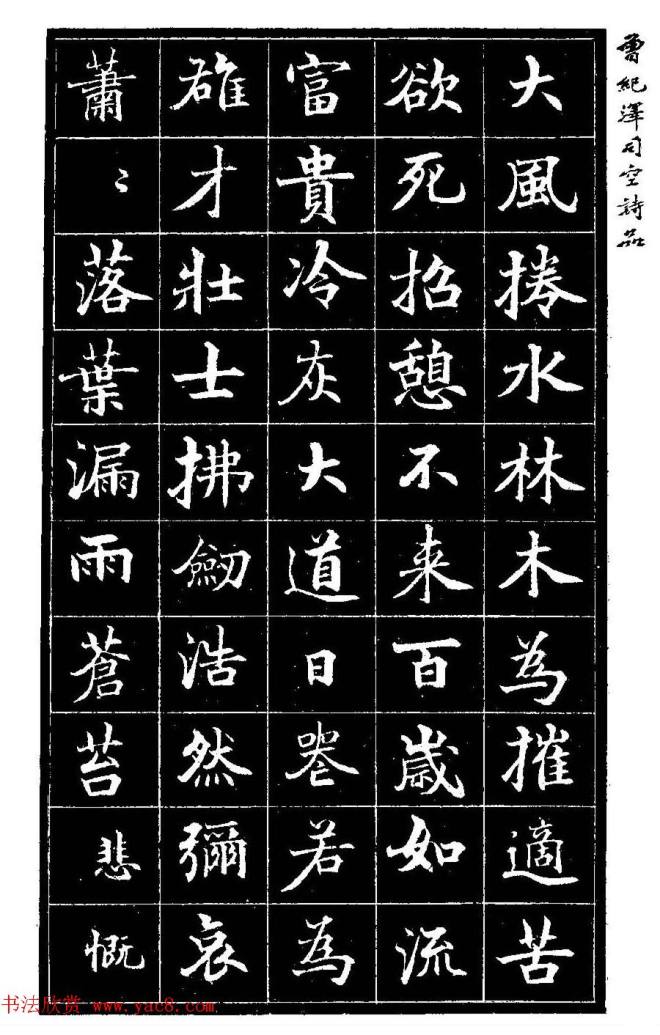 曾紀澤司空詩品
大風捲水林木為摧適苦
欲死招憩不来百歲如流
富貴冷灰大道日喪若為
雄才壯士拂劒浩然彌哀
蕭〻落葉漏雨蒼苔悲慨
书法欣赏 www.yac8.com